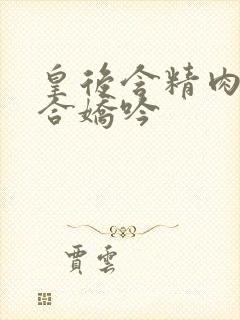 皇後含精肉
合嬌吟
賈雲